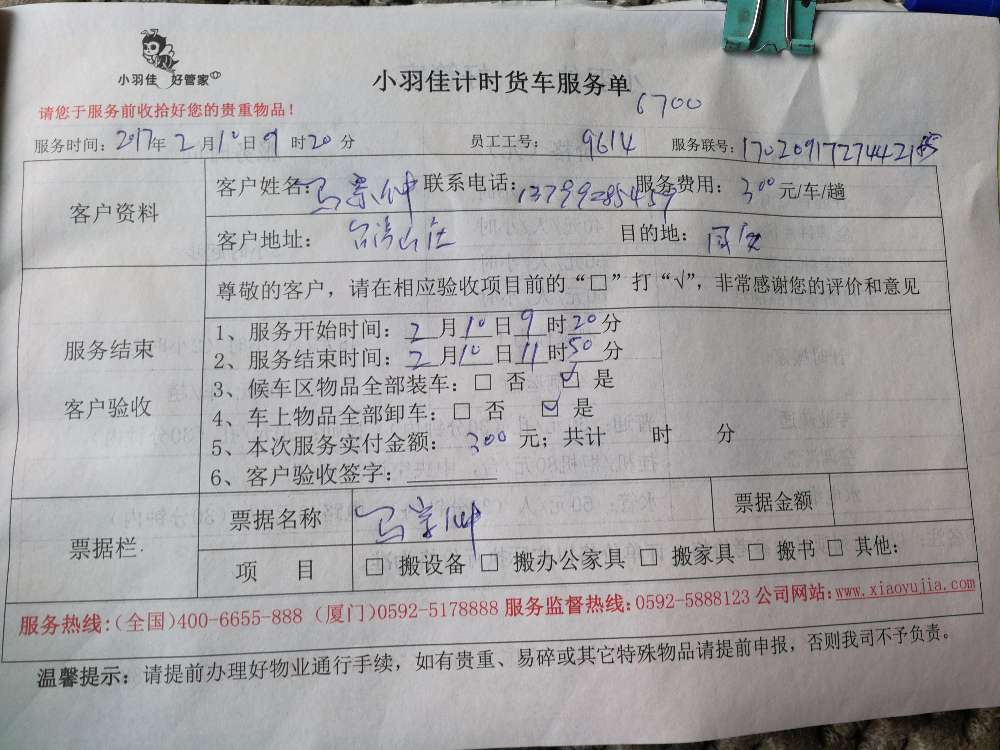 小羽佳 好管家
小羽佳计时货车服务单
6700
请您于服务前收拾好您的贵重物品！
服务时间：2017年2月10日9时20分 员工工号：9614 服务联号：1702091727442185
客户资料
客户姓名： 联系电话：13799285459 服务费用：300元/车/趟
客户地址：台湾山庄 目的地：同安
尊敬的客户，请在相应验收项目前的“□”打“√”，非常感谢您的评价和意见
服务结束
客户验收
1、服务开始时间：2月10日9时20分
2、服务结束时间：2月10日11时50分
3、候车区物品全部装车：□ 否 ☑ 是
4、车上物品全部卸车：□ 否 ☑ 是
5、本次服务实付金额：300元；共计 时 分
6、客户验收签字：
票据栏
票据名称 票据金额
项 目 □ 搬设备 □ 搬办公家具 □ 搬家具 □ 搬书 □ 其他：
服务热线：(全国)400-6655-888 (厦门)0592-5178888 服务监督热线：0592-5888123 公司网站：www.xiaoyujia.com
温馨提示：请提前办理好物业通行手续，如有贵重、易碎或其它特殊物品请提前申报，否则我司不予负责。